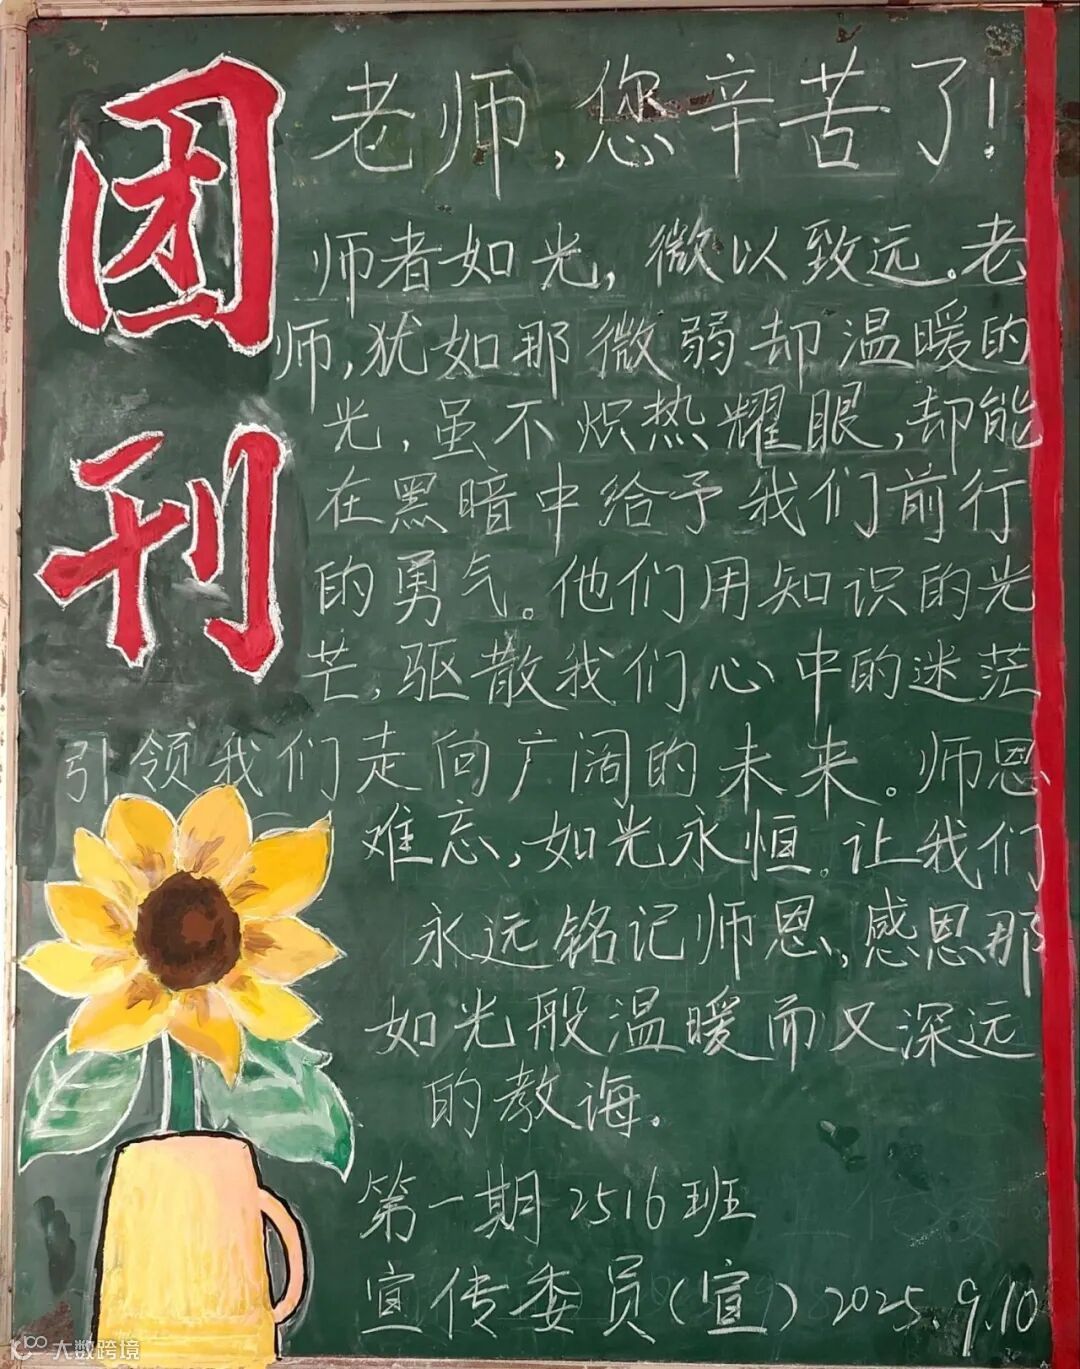 团刊
老师,您辛苦了!
师者如光,微以致远。老
师,犹如那微弱却温暖的
光,虽不炽热耀眼,却能
在黑暗中给予我们前行
的勇气。他们用知识的光
芒,驱散我们心中的迷茫
引领我们走向广阔的未来。师恩
难忘,如光永恒。让我们
永远铭记师恩,感恩那
如光般温暖而又深远
的教诲。
第一期 2516班
宣传委员(宣) 2025.9.10
大数跨境